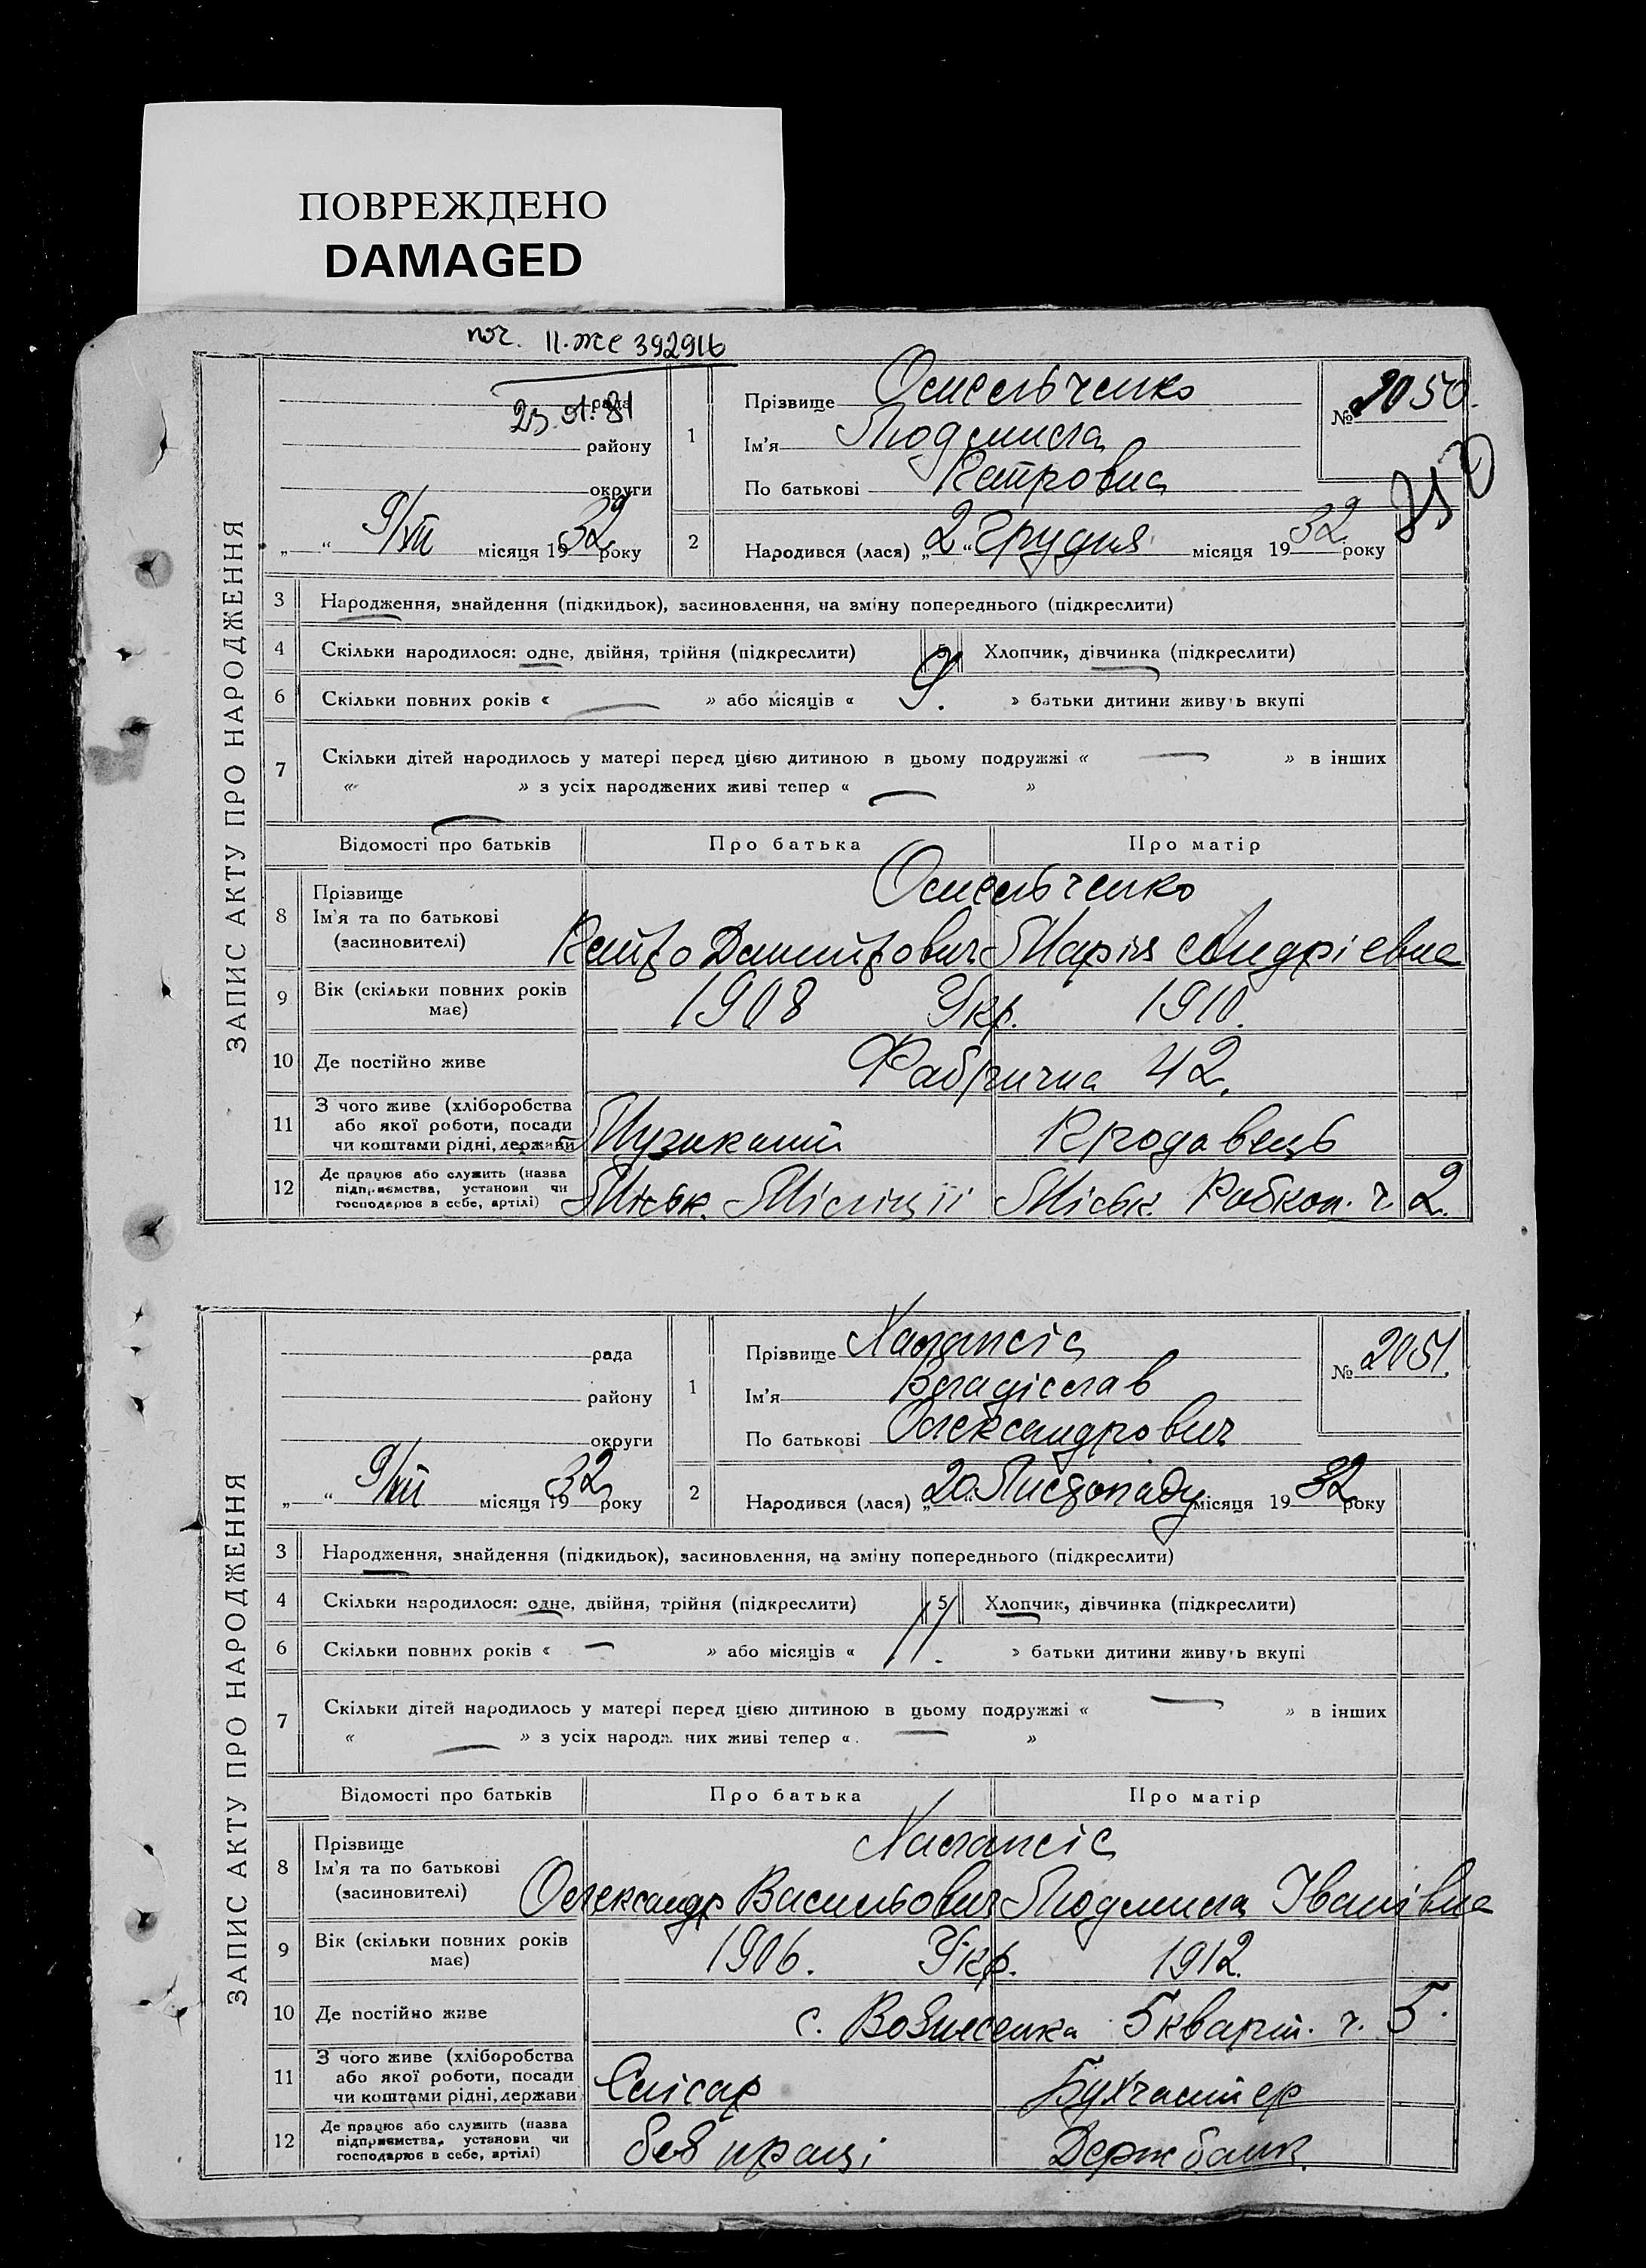 ПОВРЕЖДЕНО
DAMAGED
II-же 392916
23.01.81
ЗАПИС АКТУ ПРО НАРОДЖЕННЯ
рада
району
округи
„ “ 9/XII місяця 1932 року
1 Прізвище Омельченко
Ім'я Людмила
По батькові Петровна
№ 2050.
2 Народився (лася) „2“ Грудня місяця 1932 року
3 Народження, знайдення (підкидьок), засиновлення, на зміну попереднього (підкреслити)
4 Скільки народилося: одне, двійня, трійня (підкреслити) 5 Хлопчик, дівчинка (підкреслити)
6 Скільки повних років « — » або місяців « 9. » батьки дитини живуть вкупі
7 Скільки дітей народилось у матері перед цією дитиною в цьому подружжі « — » в інших
« — » з усіх народжених живі тепер « — »
Відомості про батьків Про батька Про матір
8 Прізвище
Ім'я та по батькові
(засиновителі)
Омельченко
Петро Дмитрович Марія Андріевна
9 Вік (скільки повних років
має)
1908 Укр. 1910.
10 Де постійно живе Фабрична 42.
11 З чого живе (хліборобства
або якої роботи, посади
чи коштами рідні, держави
Музикант Продавець
12 Де працює або служить (назва
підприємства, установи чи
господарює в себе, артілі)
Міськ. Міліції Міськ. Робкоп. ч. 2.
ЗАПИС АКТУ ПРО НАРОДЖЕННЯ
рада
району
округи
„ “ 9/XII місяця 1932 року
1 Прізвище
Ім'я Владіслав
По батькові Олександрович
№ 2051.
2 Народився (лася) „20“ Листопаду місяця 1932 року
3 Народження, знайдення (підкидьок), засиновлення, на зміну попереднього (підкреслити)
4 Скільки народилося: одне, двійня, трійня (підкреслити) 5 Хлопчик, дівчинка (підкреслити)
6 Скільки повних років « — » або місяців « 11. » батьки дитини живуть вкупі
7 Скільки дітей народилось у матері перед цією дитиною в цьому подружжі « — » в інших
« — » з усіх народж них живі тепер « — »
Відомості про батьків Про батька Про матір
8 Прізвище
Ім'я та по батькові
(засиновителі)
Олександр Васильович Людмила Іванівна
9 Вік (скільки повних років
має)
1906. Укр. 1912.
10 Де постійно живе с. Вознесенка 5 кварт. ч. 5.
11 З чого живе (хліборобства
або якої роботи, посади
чи коштами рідні, держави
Слісар Бухгалтер
12 Де працює або служить (назва
підприємства, установи чи
господарює в себе, артілі)
без праці Держбанк.